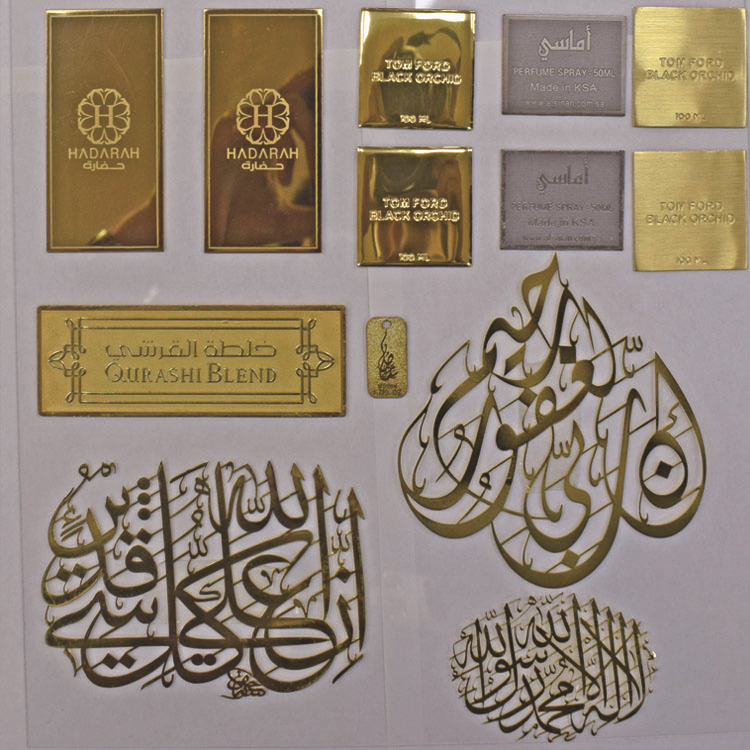 HADARAH
حضارة
HADARAH
حضارة
TOM FORD
BLACK ORCHID
100 ML
أماسي
PERFUME SPRAY-50ML
Made in KSA
TOM FORD
BLACK ORCHID
100 ML
TOM FORD
BLACK ORCHID
100 ML
أماسي
PERFUME SPRAY-50ML
Made in KSA
TOM FORD
BLACK ORCHID
100 ML
خلطة القرشي
QURASHI BLEND
إن ربي لغفور رحيم
إن الله على كل شيء قدير
لا إله إلا الله محمد رسول الله